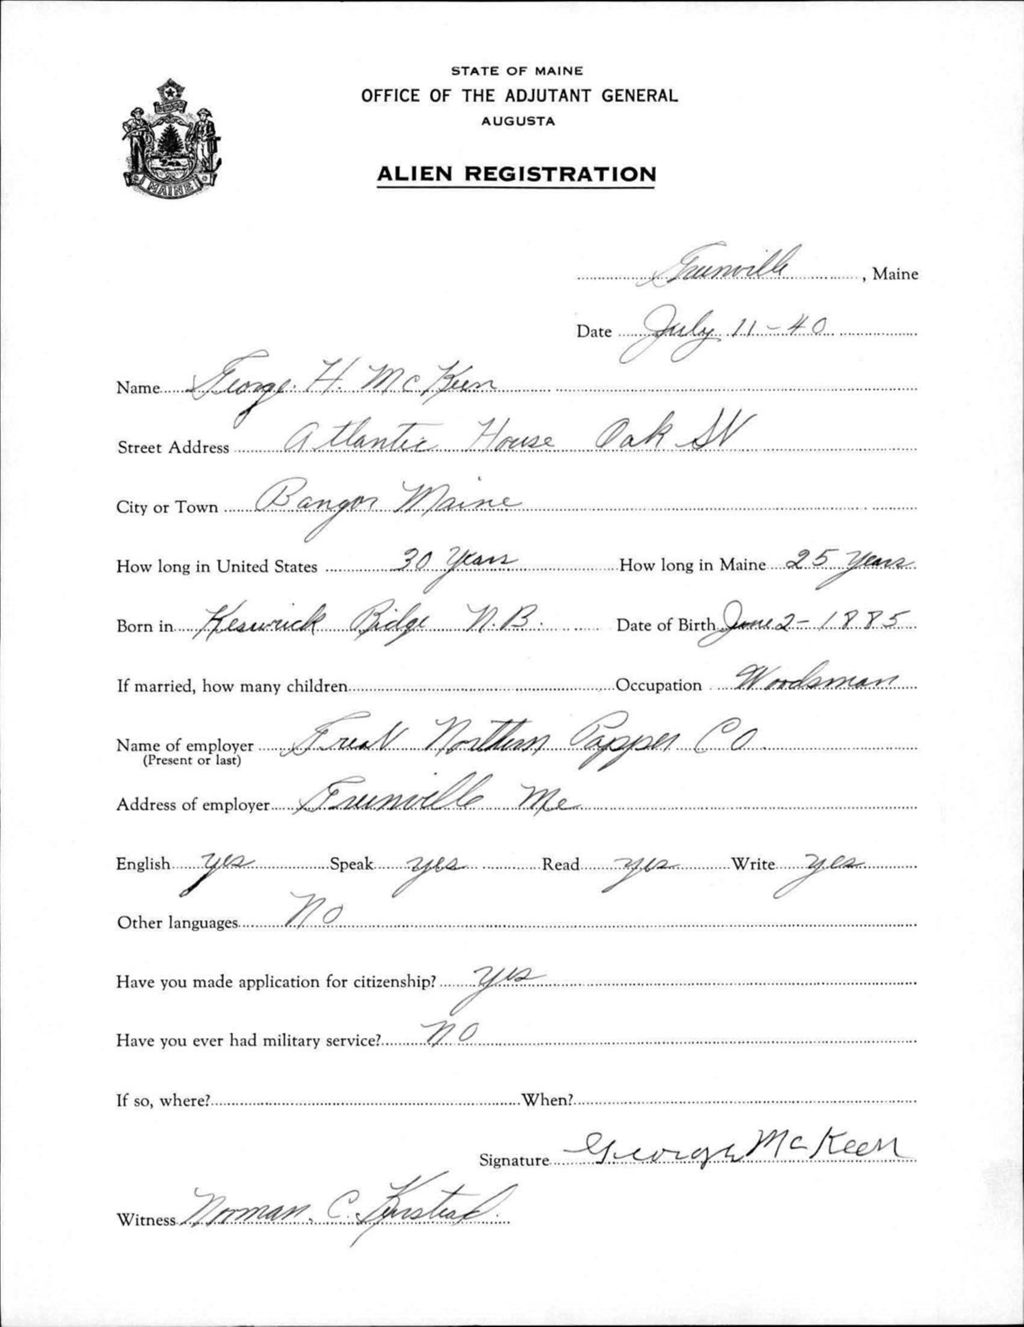 STATE OF MAINE
OFFICE OF THE ADJUTANT GENERAL
AUGUSTA
MAINE
ALIEN REGISTRATION
Greenville, Maine
Date July 11-40
Name George H. McKeen
Street Address Atlantic House Oak St
City or Town Bangor Maine
How long in United States 30 Years How long in Maine 25 Years
Born in Keswick Ridge N.B. Date of Birth June 2-1885
If married, how many children Occupation Woodsman
Name of employer Great Northern Papper Co.
(Present or last)
Address of employer Greenville Me
English yes Speak yes Read yes Write yes
Other languages No
Have you made application for citizenship? Yes
Have you ever had military service? No
If so, where? When?
Signature George McKeen
Witness Norman. C.